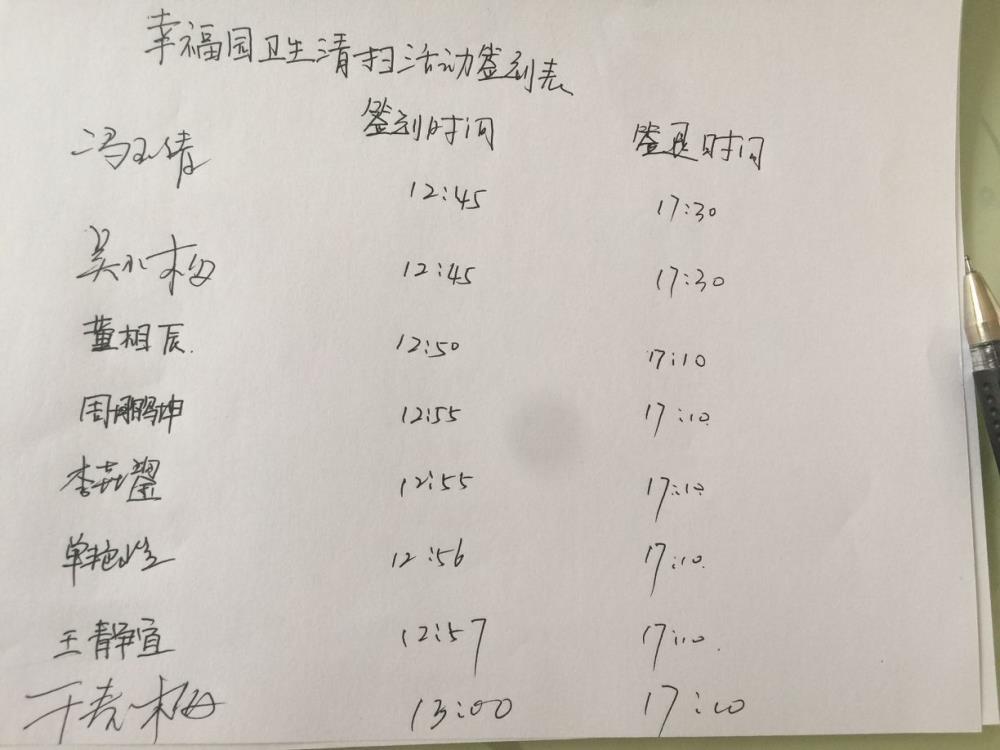 幸福园卫生清扫活动签到表
签到时间 签退时间
冯玉倩
12:45 17:30
吴小梅 12:45 17:30
董相辰. 12:50 17:10
周鹏坤 12:55 17:10
李垚 12:55 17:10
单艳 12:56 17:10.
王静宜 12:57 17:10.
于 梅 13:00 17:10